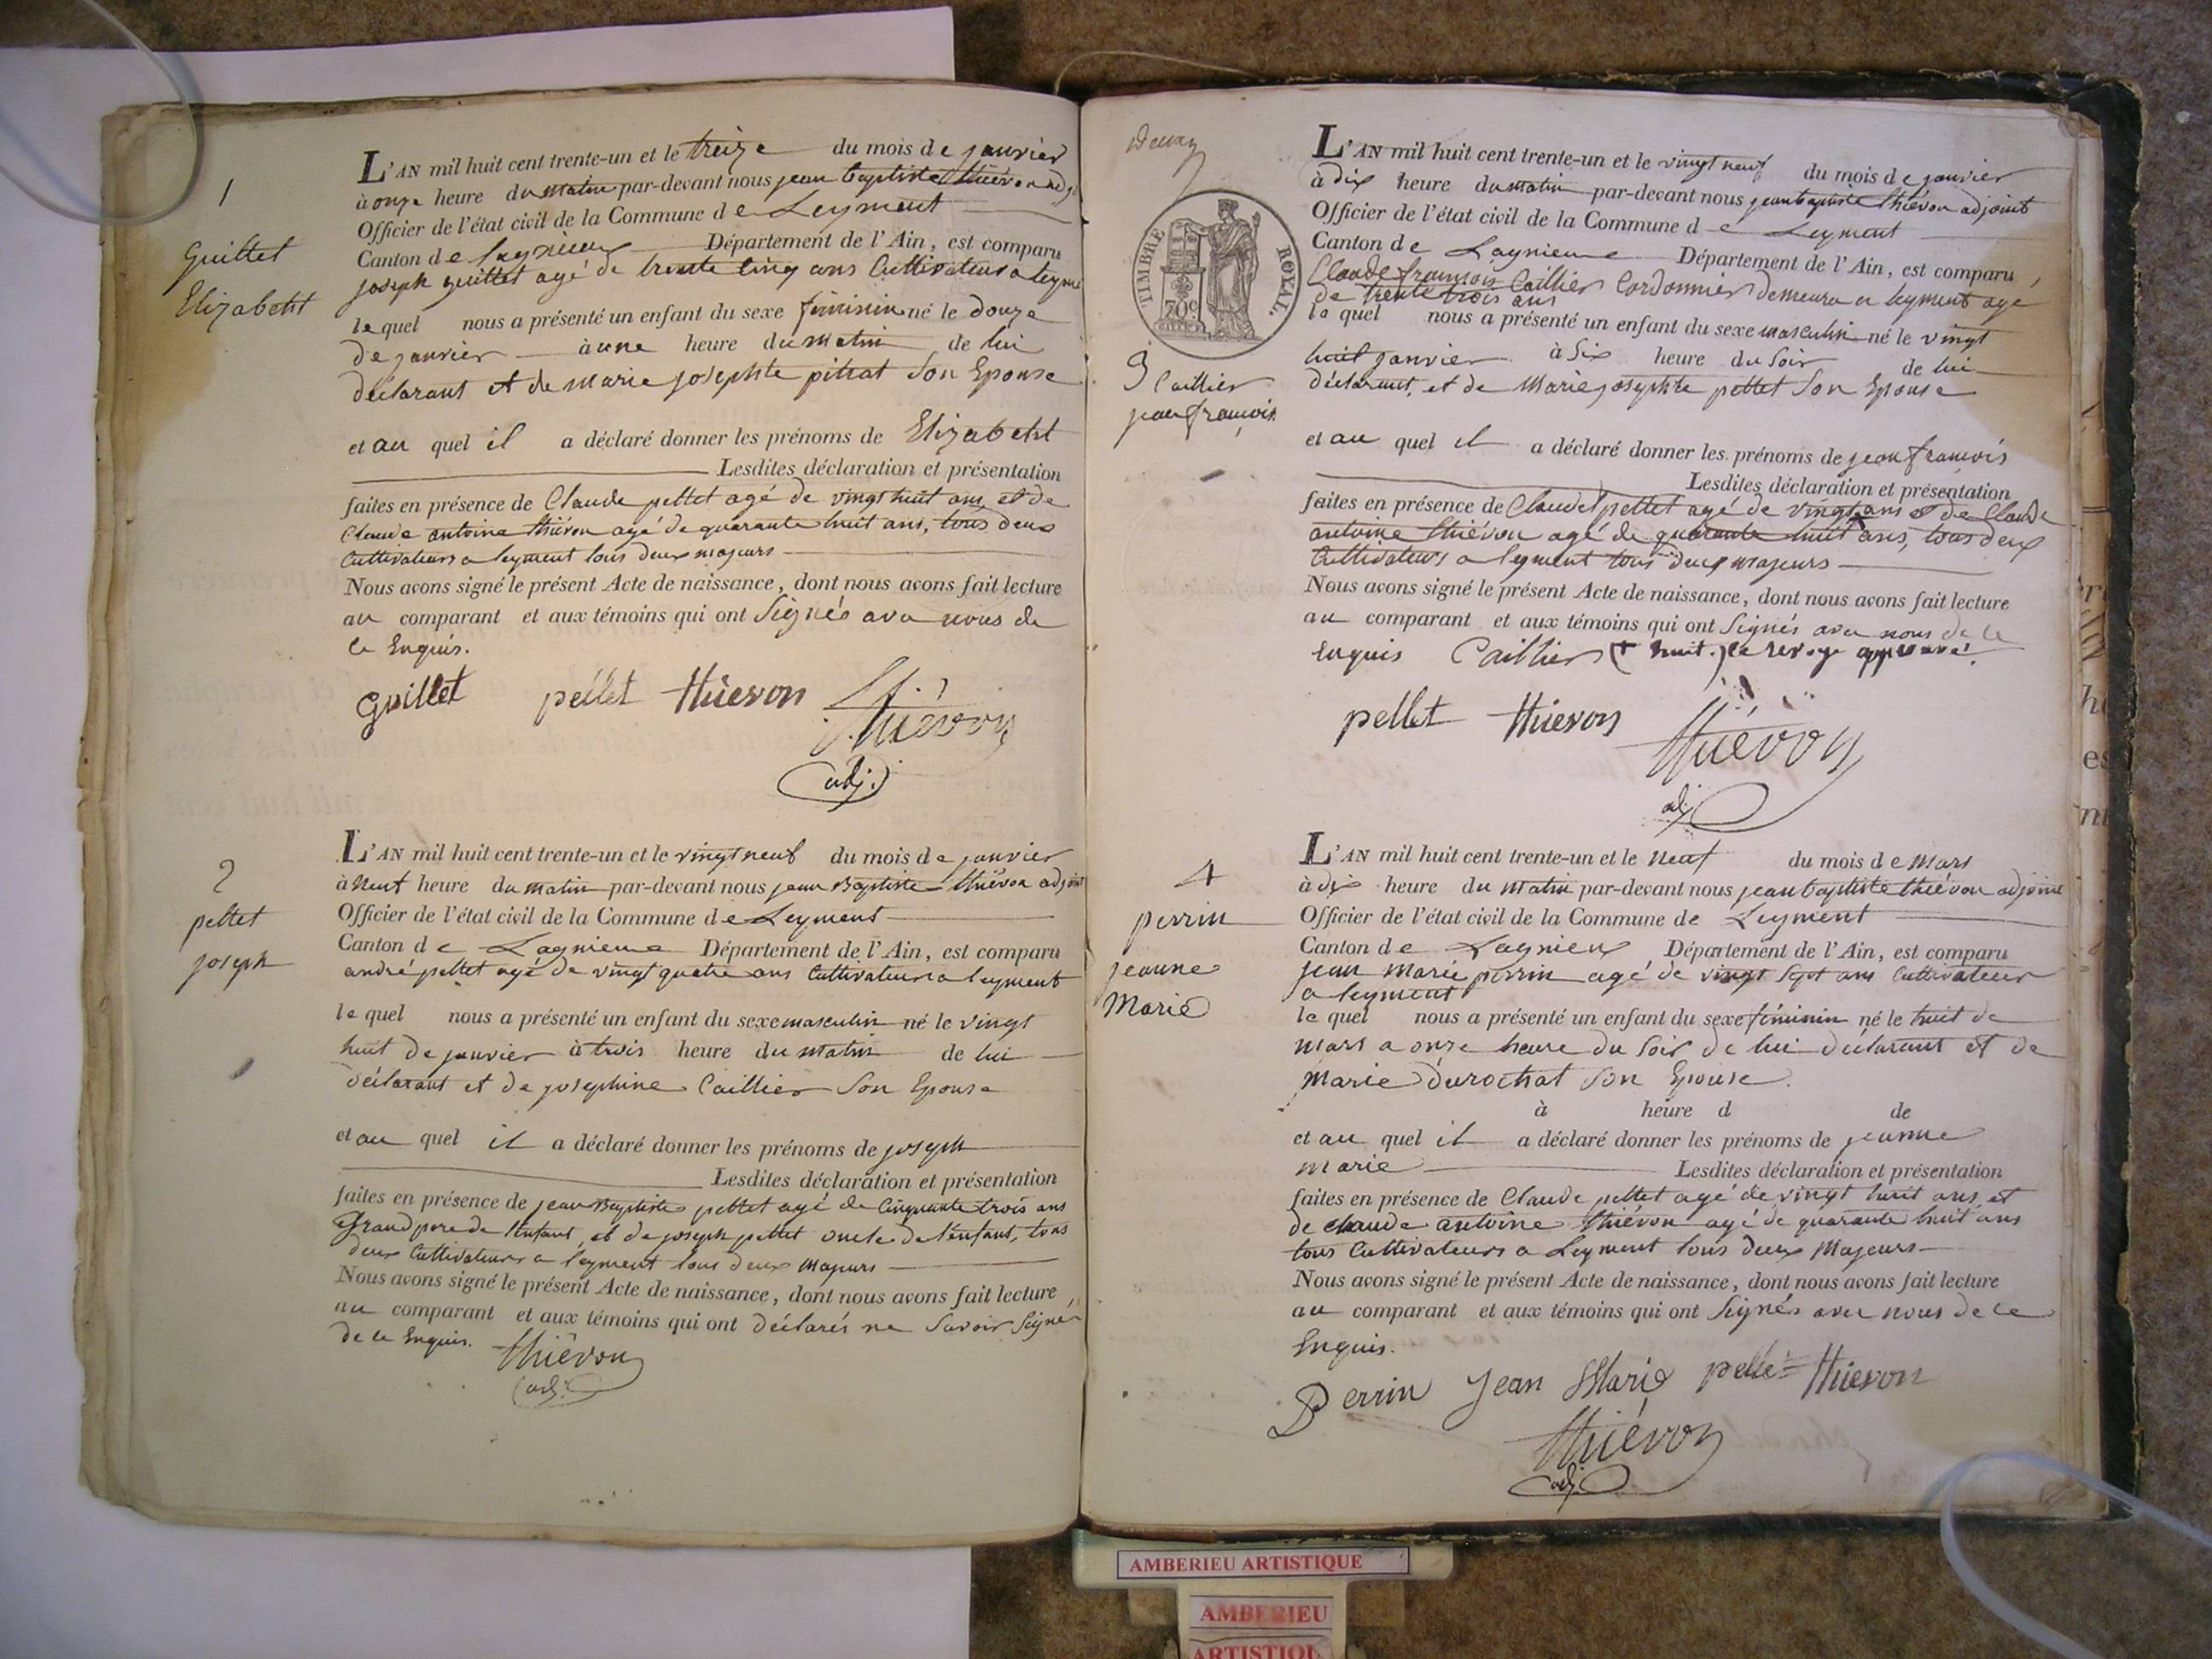 1
Guillet
Elizabeht
L'AN mil huit cent trente-un et le treize du mois de janvier
à onze heure du matin par-devant nous jean baptiste thiévon adj
Officier de l'état civil de la Commune de Leyment
Canton de lagnieux Département de l'Ain, est comparu
joseph guillet agé de trente cinq ans Cultivateur a leyme
lequel nous a présenté un enfant du sexe féminin né le douze
de janvier à une heure du matin de lui
déclarant et de marie josephte pitrat Son Epouse
et au quel il a déclaré donner les prénoms de Elizabeht
Lesdites déclaration et présentation
faites en présence de Claude pellet agé de vingt huit ans, et de
Claude antoine thiévon agé de quarante huit ans, tous deux
Cultivateurs a leyment tous deux majeurs
Nous avons signé le présent Acte de naissance, dont nous avons fait lecture
au comparant et aux témoins qui ont Signés avec nous de
ce Enquis.
Guillet pellet thiévon
thiévon
adj.
2
pellet
joseph
L'AN mil huit cent trente-un et le vingt neuf du mois de janvier
à neuf heure du matin par-devant nous jean Baptiste thiévon adjoint
Officier de l'état civil de la Commune de Leyment
Canton de Lagnieux Département de l'Ain, est comparu
andré pellet agé de vingt quatre ans Cultivateur a leyment
lequel nous a présenté un enfant du sexe masculin né le vingt
huit de janvier à trois heure du matin de lui
déclarant et de josephine Caillier Son Epouse
et au quel il a déclaré donner les prénoms de joseph
Lesdites déclaration et présentation
faites en présence de jean Baptiste pellet agé de Cinquante trois ans
Grand pere de l'enfant, et de joseph pellet oncle de l'enfant, tous
deux Cultivateurs a leyment tous deux majeurs
Nous avons signé le présent Acte de naissance, dont nous avons fait lecture
au comparant et aux témoins qui ont déclarés ne Savoir Signer
de ce Enquis. thiévon
adj.
TIMBRE ROYAL.
70c
3 Caillier
jean françois
L'AN mil huit cent trente-un et le vingt neuf du mois de janvier
à dix heure du matin par-devant nous jean baptiste thiévon adjoint
Officier de l'état civil de la Commune de Leyment
Canton de Lagnieux Département de l'Ain, est comparu
Claude françois Caillier Cordonnier demeura a leyment agé
de trente trois ans
lequel nous a présenté un enfant du sexe masculin né le vingt
huit janvier à Six heure du Soir de lui
déclarant, et de Marie josephte pellet Son Epouse
et au quel il a déclaré donner les prénoms de jean françois
Lesdites déclaration et présentation
faites en présence de Claude pellet agé de vingt + ans et de Claude
antoine thiévon agé de quarante huit ans, tous deux
Cultivateurs a leyment tous deux majeurs
Nous avons signé le présent Acte de naissance, dont nous avons fait lecture
au comparant et aux témoins qui ont Signés avec nous de ce
Enquis Caillier (+ huit.) le renvoye approuvé.
pellet thiévon
thiévon
adj
4
perrin
jeanne
Marie
L'AN mil huit cent trente-un et le neuf du mois de Mars
à dix heure du matin par-devant nous jean baptiste thiévon adjoint
Officier de l'état civil de la Commune de Leyment
Canton de Lagnieux Département de l'Ain, est comparu
jean marie perrin agé de vingt Sept ans Cultivateur
a leyment
lequel nous a présenté un enfant du sexe féminin né le huit de
mars a onze heure du Soir de lui déclarant et de
marie durochat Son Epouse.
à heure d de
et au quel il a déclaré donner les prénoms de jeanne
marie Lesdites déclaration et présentation
faites en présence de Claude pellet agé de vingt huit ans et
de Claude antoine thiévon agé de quarante huit ans
tous Cultivateurs a Leyment tous deux Majeurs
Nous avons signé le présent Acte de naissance, dont nous avons fait lecture
au comparant et aux témoins qui ont Signés avec nous de ce
Enquis.
Perrin Jean Marie pellet thiévon
thiévon
adj.
AMBERIEU ARTISTIQUE
AMBERIEU
ARTISTIQU